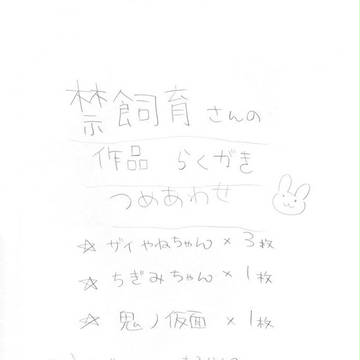 禁飼育さんの
作品 らくがき
つめあわせ
☆ ザイやねちゃん × 3枚
☆ ちぎみちゃん × 1枚
☆ 鬼ノ仮面 × 1枚